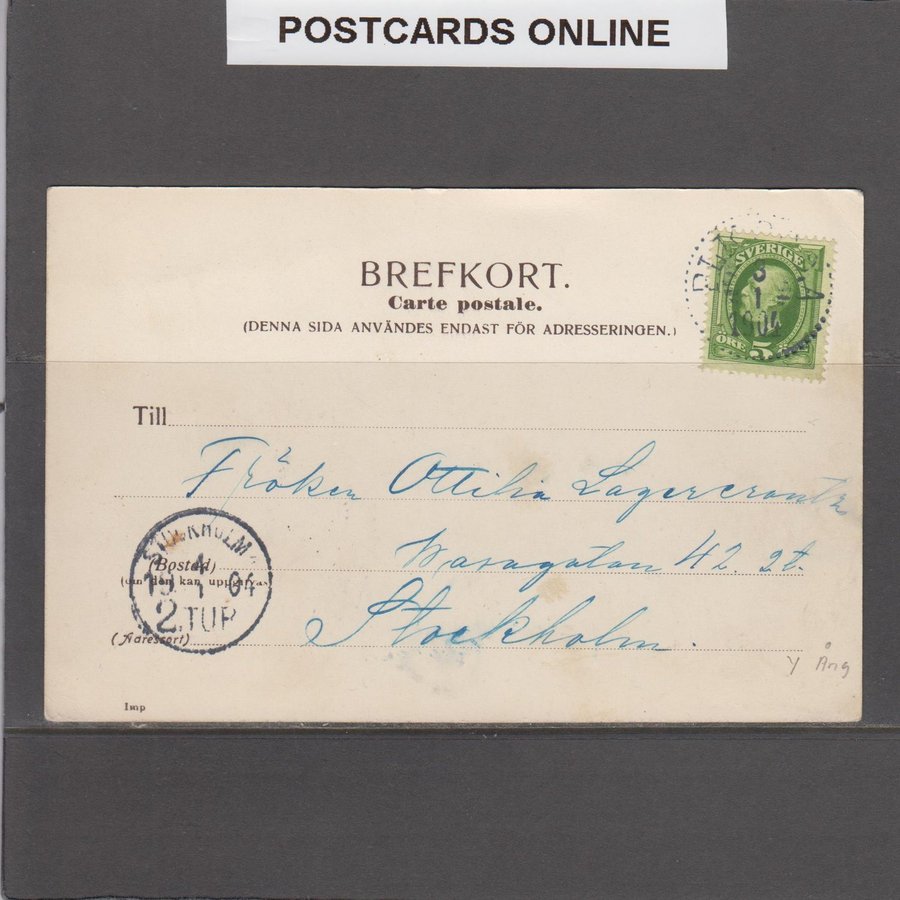 POSTCARDS ONLINE
BREFKORT.
Carte postale.
(DENNA SIDA ANVÄNDES ENDAST FÖR ADRESSERINGEN.)
SVERIGE
3
1
1904
ÖRE 5
Till
Fröken Ottilia Lagercrantz
STOCKHOLM
Wasagatan 42. 2t.
(Bostad)
4
19 1 04
(om den kan uppgifvas)
2.TUR
Stockholm.
(Adressort)
Imp